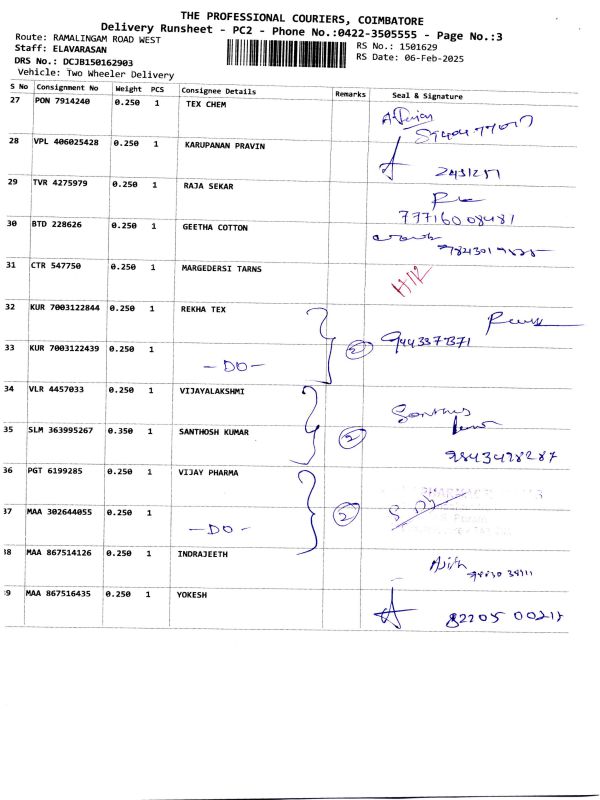 THE PROFESSIONAL COURIERS, COIMBATORE
Delivery Runsheet - PC2 - Phone No.:0422-3505555 - Page No.:3
Route: RAMALINGAM ROAD WEST
Staff: ELAVARASAN
RS No.: 1501629
DRS No.: DCJB150162903
RS Date: 06-Feb-2025
Vehicle: Two Wheeler Delivery
S No Consignment No Weight PCS Consignee Details Remarks Seal & Signature
27 PON 7914240 0.250 1 TEX CHEM
28 VPL 406025428 0.250 1 KARUPANAN PRAVIN
2431251
29 TVR 4275979 0.250 1 RAJA SEKAR
77716008481
30 BTD 228626 0.250 1 GEETHA COTTON
31 CTR 547750 0.250 1 MARGEDERSI TARNS
32 KUR 7003122844 0.250 1 REKHA TEX
33 KUR 7003122439 0.250 1 -DO- 2
34 VLR 4457033 0.250 1 VIJAYALAKSHMI
35 SLM 363995267 0.350 1 SANTHOSH KUMAR 2 Santhus
9843498287
36 PGT 6199285 0.250 1 VIJAY PHARMA
37 MAA 302644055 0.250 1 -DO- 2
38 MAA 867514126 0.250 1 INDRAJEETH
39 MAA 867516435 0.250 1 YOKESH